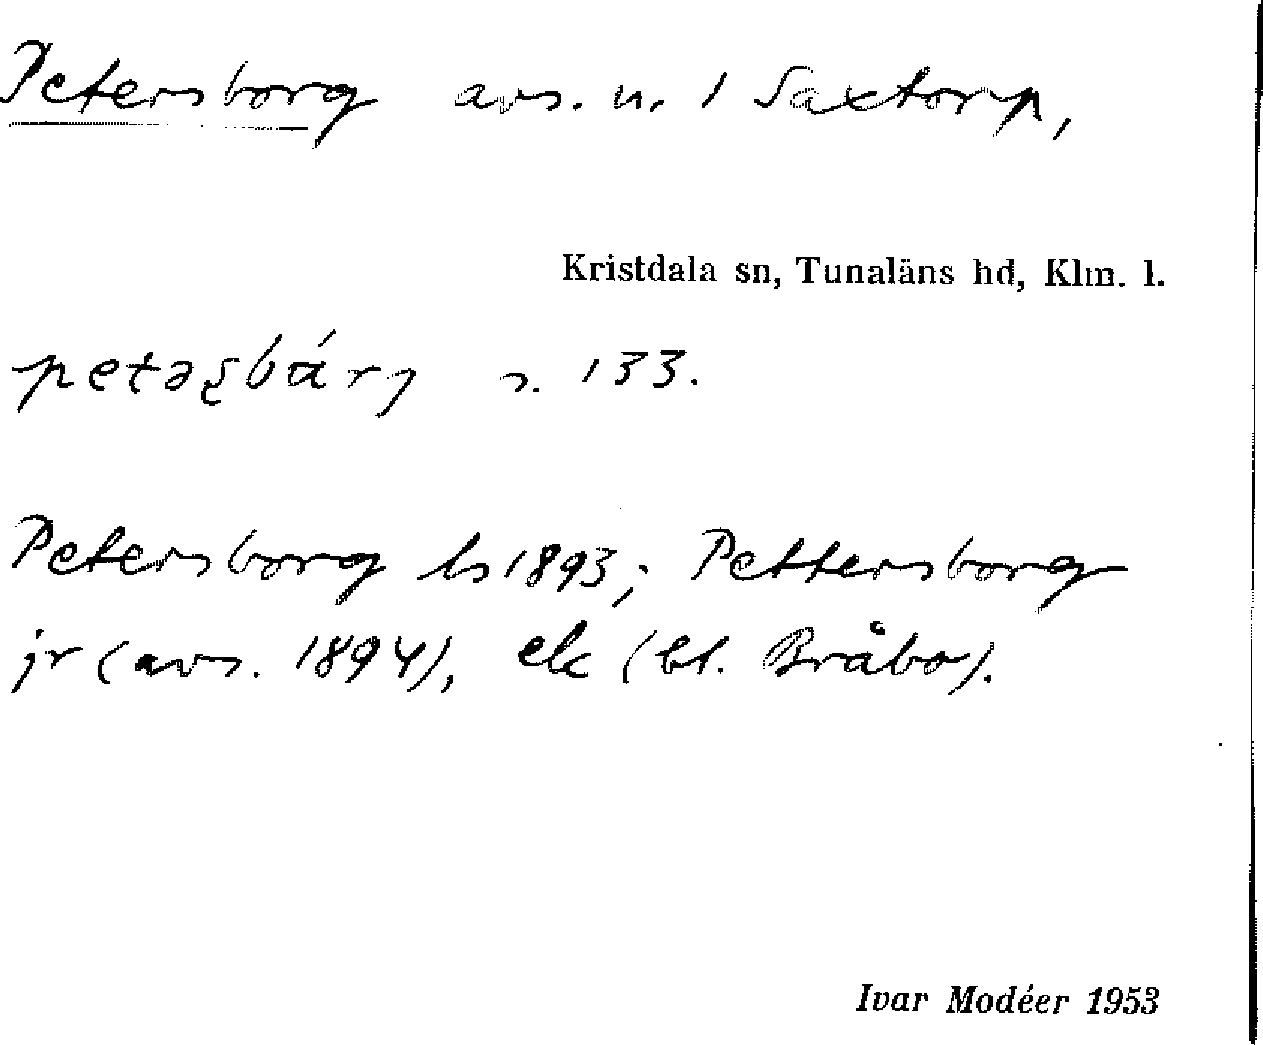 Petersborg avs. u. 1 Saxtorp,
Kristdala sn, Tunaläns hd, Klm. l.
petəʂbárj s. 133.
Petersborg hs 1893; Pettersborg
jr (avs. 1894), ek (bl. Bråbo).
Ivar Modéer 1953